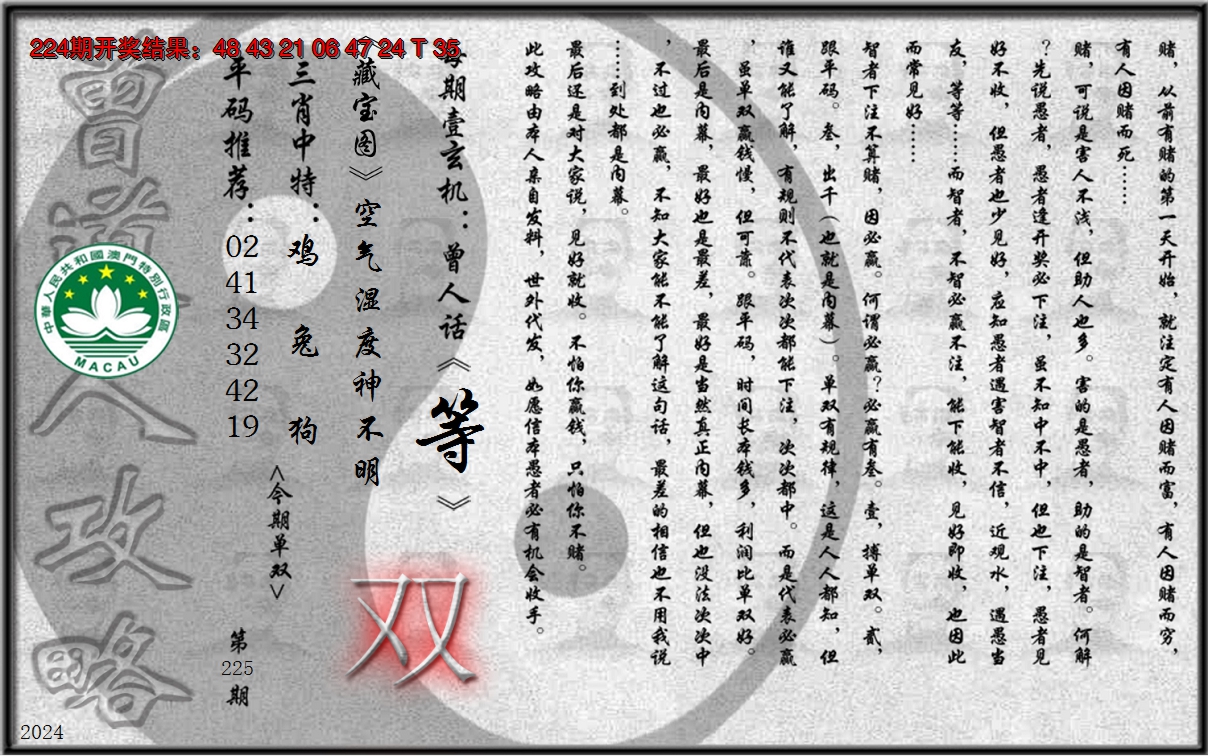 224期开奖结果：48 43 21 06 47 24 T 35
赌，从前有赌的第一天开始，就注定有人因赌而富，有人因赌而穷，
有人因赌而死……
赌，可说是害人不浅，但助人也多。害的是愚者，助的是智者。何解
？先说愚者，愚者逢开奖必下注，虽不知中不中，但也下注，愚者见
好不收，但愚者也少见好，应知愚者遇害智者不信，近观水，遇愚当
友，等等……而智者，不智必赢不注，能下能收，见好即收，也因此
而常见好……
智者下注不算赌，因必赢。何谓必赢？必赢有叁。壹，搏单双。贰，
跟平码。叁，出千（也就是内幕）。单双有规律，这是人人都知，但
谁又能了解，有规则不代表次次都能下注，次次都中。而是代表必赢
，虽单双赢钱慢，但可靠。跟平码，时间长本钱多，利润比单双好。
最后是内幕，最好也是最差，最好是当然真正内幕，但也没法次次中
，不过也必赢，不知大家能不能了解这句话，最差的相信也不用我说
……到处都是内幕。
最后还是对大家说，见好就收。不怕你赢钱，只怕你不赌。
此攻略由本人亲自发料，世外代发，如愿信本愚者必有机会收手。
每期壹玄机：曾人话《等》
《藏宝图》空气湿度神不明
三肖中特：鸡 兔 狗
平码推荐：02 41 34 32 42 19
<今期单双>
双
第225期
曾道人攻略
中華人民共和國澳門特別行政區
MACAU
2024